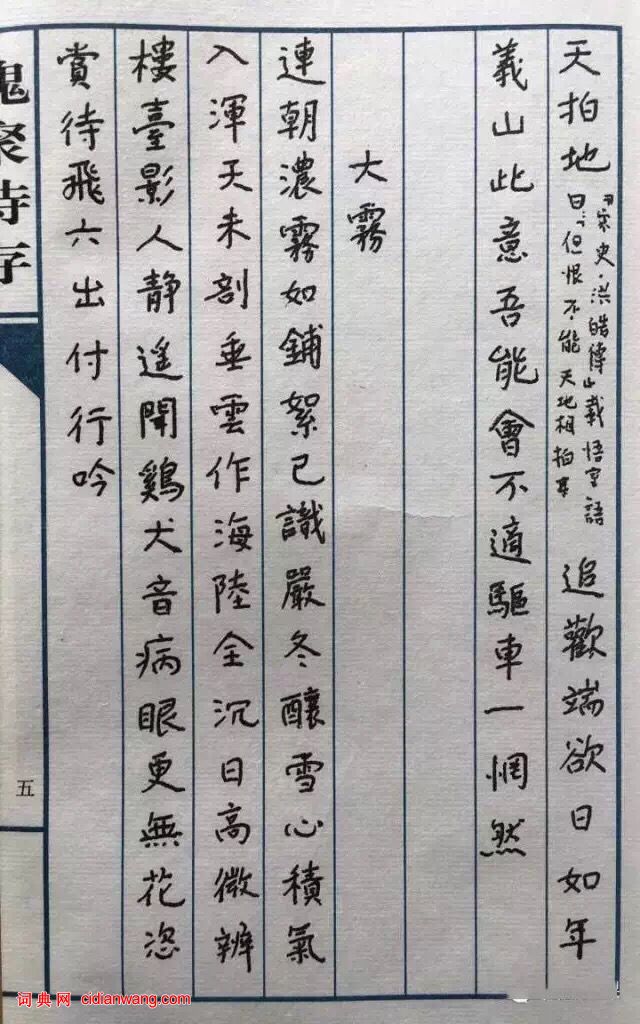 天拍地
《宋史·洪皓傳》載悟室語
曰：「但恨不能天地相拍耳
追歡端欲日如年
義山此意吾能會不適驅車一惘然
大霧
連朝濃霧如鋪絮已識嚴冬釀雪心積氣
入渾天未剖垂雲作海陸全沉日高微辨
樓臺影人靜遙聞鷄犬音病眼更無花恣
賞待飛六出付行吟
槐聚詩存
五
词典网 cidianwang.com